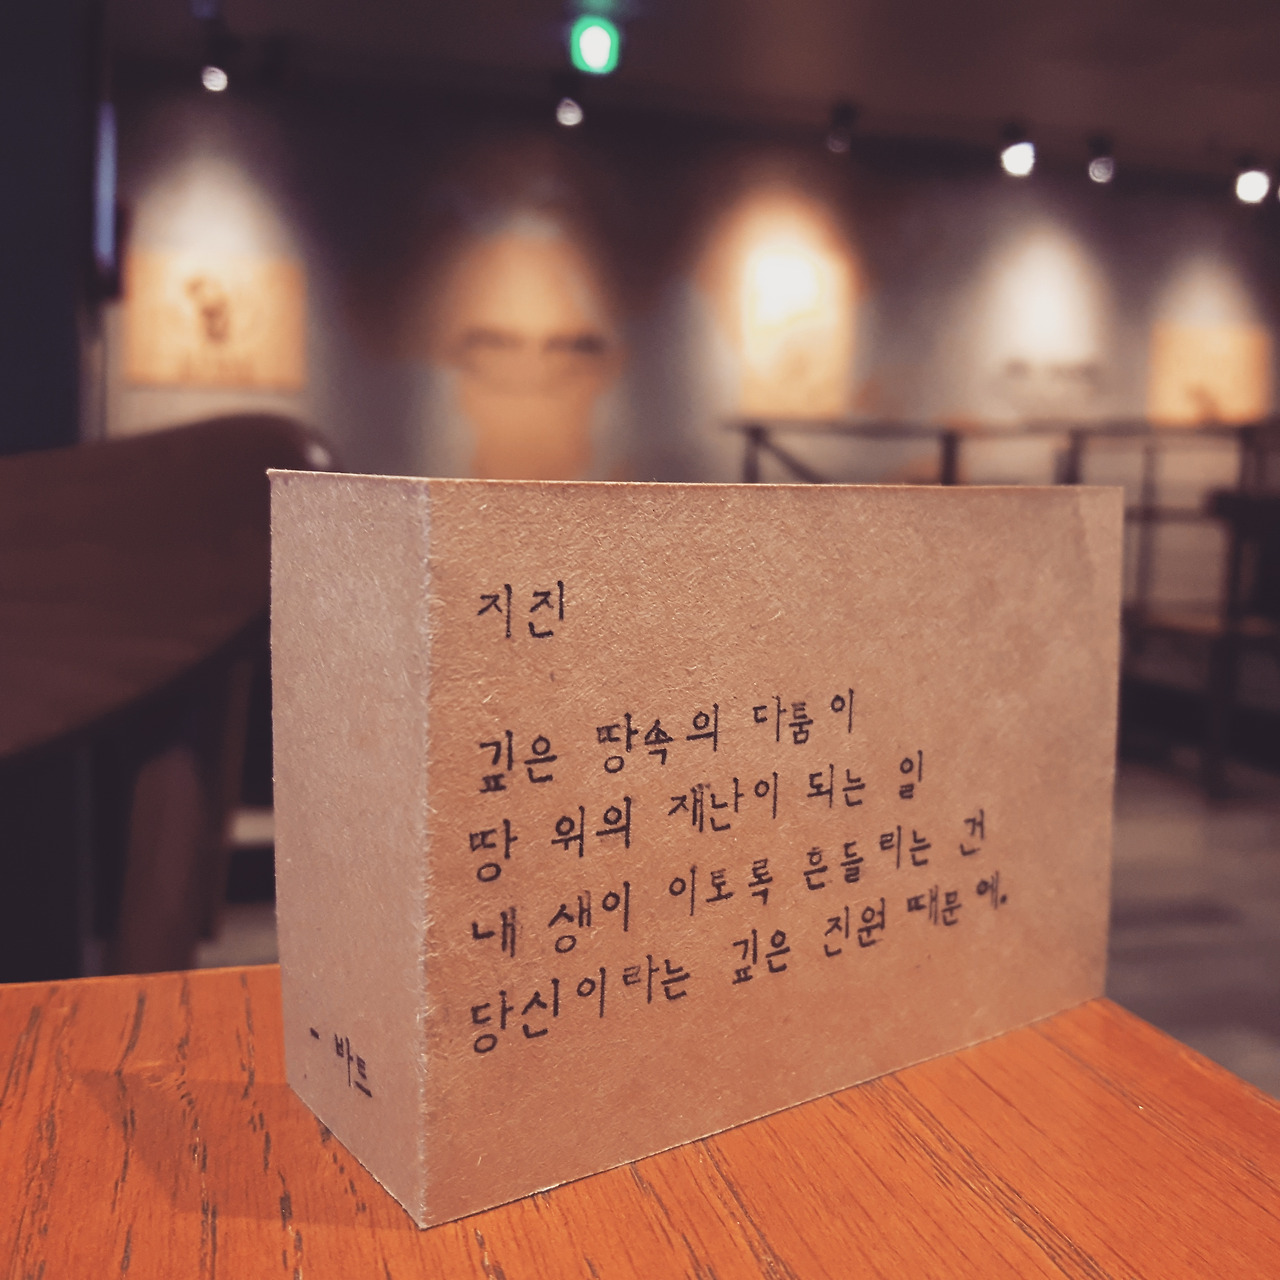 지진
깊은 땅속의 다툼이
땅 위의 재난이 되는 일
내 생이 이토록 흔들리는 건
당신이라는 깊은 진원 때문에.
- 바트